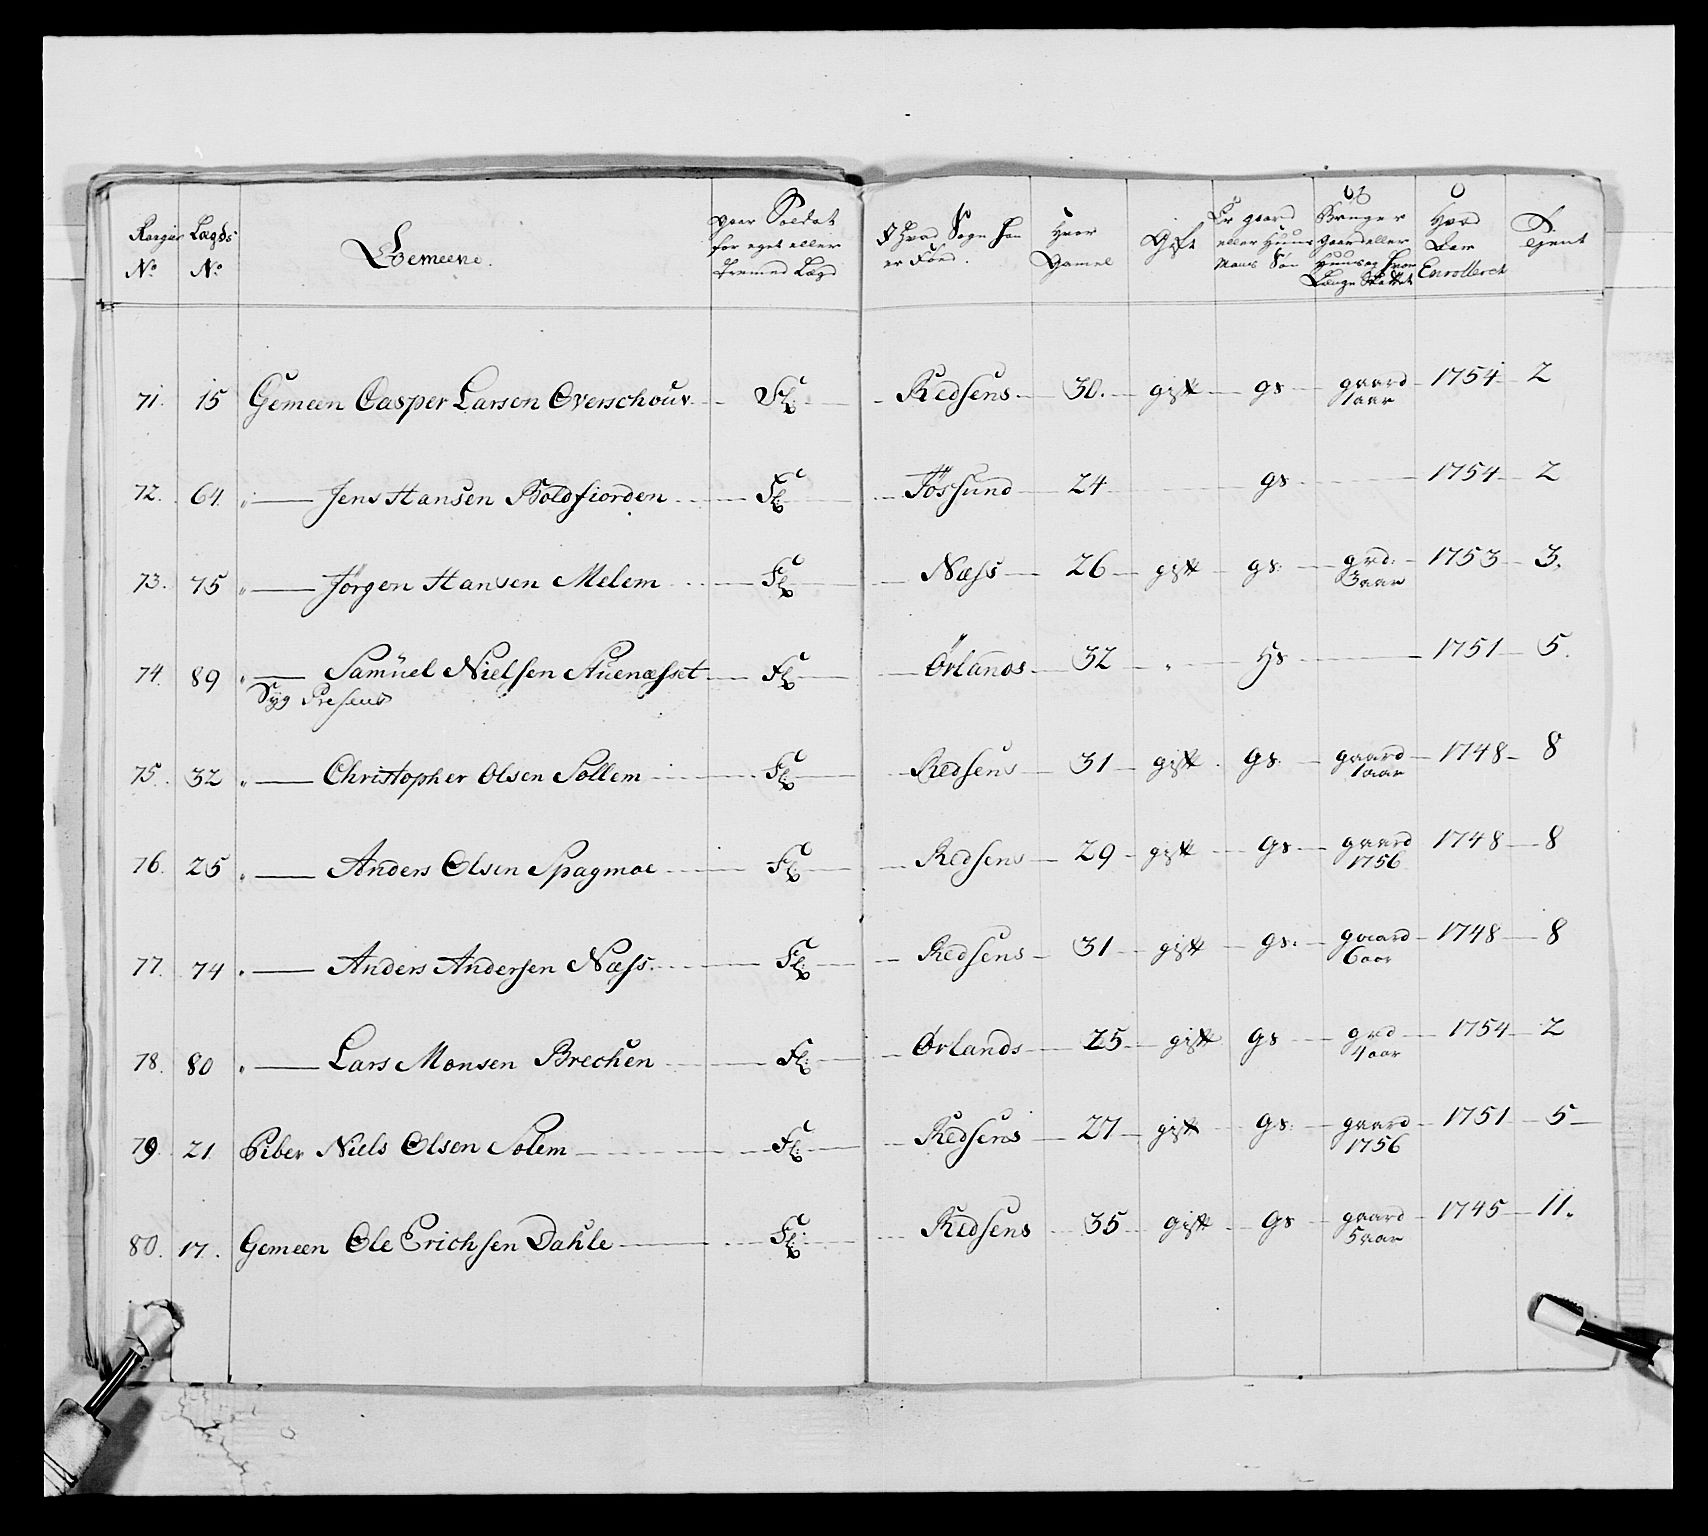 Rangir N° Lægds N° Gemeene. paar Soldat for eget eller fremed Lægd I hvad Sogn han er Föed. Hvor Gamel Gift Er gaard eller Huus Mans Sön Bruger Gaard eller Huus og hvor Længe Skattet Hvad Aar Enrolleret Tient
71. 15 Gemeen Casper Larsen Overschouv Fl: Redsens 30. gift gs gaard 1 aar 1754 2
72. 64 " Jens Hansen Boldfiorden Fl: Jössund 24 gs 1754 2
73. 75 " Jörgen Hansen Melem Fl: Næss 26 gift gs: grd: 3 aar 1753 3.
74. 89 " Samuel Nielsen Auenæsset Fl: Örlands 32 " Hs 1751 5.
Syg Presens
75. 32 " Christopher Olsen Sollem Fl: Redsens 31 gift Gs: gaard 1 aar 1748 8
76. 25 " Anders Olsen Spagmoe Fl: Redsens 29 gift Gs gaard 1756 1748 8
77. 74 " Anders Andersen Næss. Fl: Redsens 31 gift gs: gaard 6 aar 1748 8
78. 80 " Lars Monsen Brechen Fl: Örlands 25 gift gs grd 4 aar 1754 2
79. 21 Piber Niels Olsen Solem Fl: Redsens 27 gift gs: gaard 1756 1751 5
80. 17. Gemeen Ole Erichsen Dahle Fl: Redsens 35 gift Gs gaard 5 aar 1745 11.